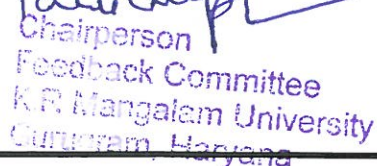 Chairperson
Feedback Committee
K.R. Mangalam University
Gurugram, Haryana